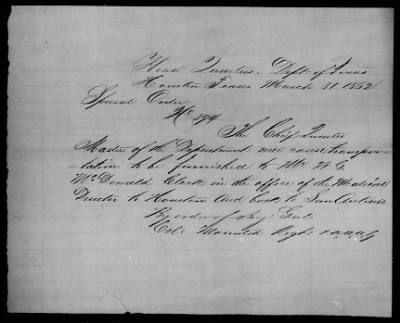 Head Quarters Dept of Texas
Houston Texas March 31 1862
Special Order
No 594
The Chief Quarter
Master of the Department will cause transpor-
tation to be furnished to Mr W G
McDonald Clerk in the office of the Medical
Director to Houston and back to San Antonio
By order of Brig Genl
Col Mounted Regt